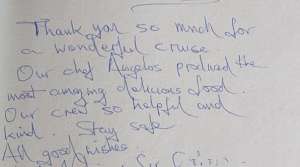 Thank you so much for
a wonderful cruise.
Our chef Angelos produced the
most amazing delicious food.
Our crew so helpful and
kind. Stay safe
All good wishes